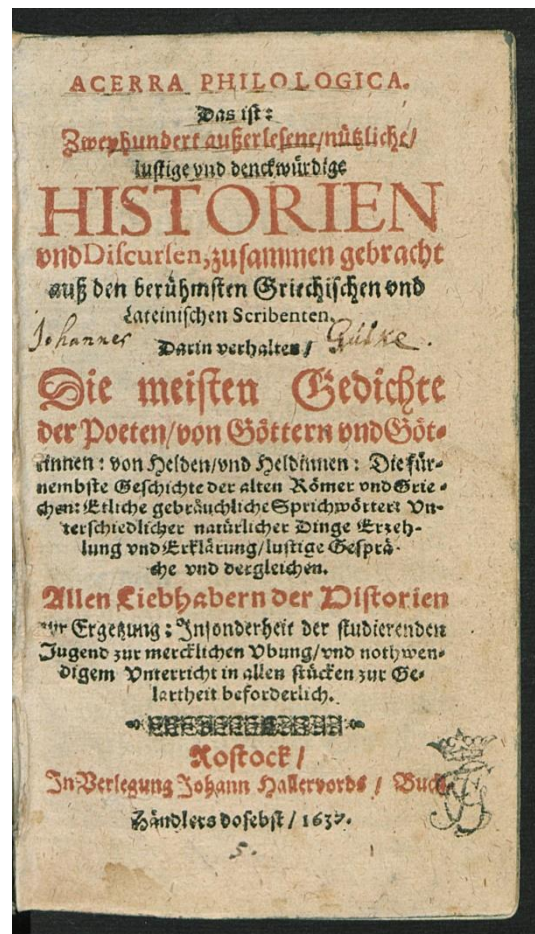 ACERRA PHILOLOGICA.
Das ist:
Zweyhundert außerlesene/nützliche/
lustige vnd denckwürdige
HISTORIEN
vnd Discursen, zusammen gebracht
auß den berühmsten Griechischen vnd
Lateinischen Scribenten.
Johannes Gülke.
Darin verhalten/
Die meisten Gedichte
der Poeten/von Göttern vnd Göt-
tinnen: von Helden/vnd Heldinnen: Die für-
nembste Geschichte der alten Römer vnd Grie-
chen: Etliche gebräuchliche Sprichwörter: Vn-
terschiedlicher natürlicher Dinge Erzeh-
lung vnd Erklärung/lustige Gesprä-
che vnd dergleichen.
Allen Liebhabern der Historien
zur Ergetzung: Insonderheit der studierenden
Jugend zur mercklichen Vbung/vnd nothwen-
digem Vnterricht in allen stücken zur Ge-
lartheit beforderlich.
Rostock/
In Verlegung Johann Hallervords/ Buch-
Händlers doselbst/ 1637.
5.